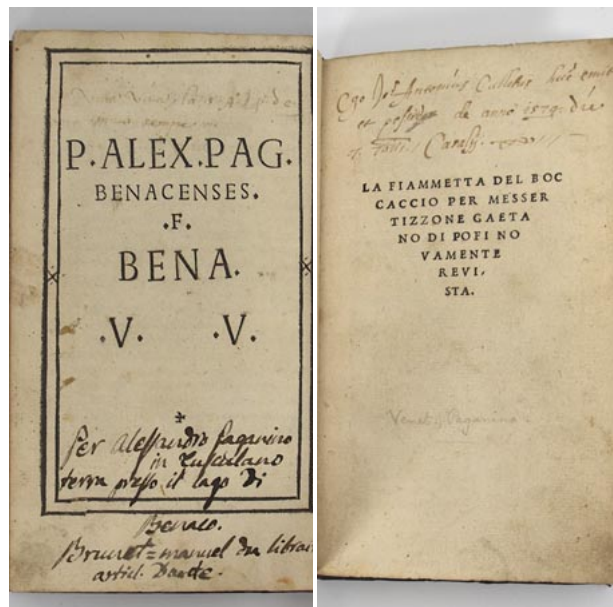 P. ALEX. PAG.
BENACENSES.
.F.
BENA.
.V. .V.
Per Alessandro Paganino
in Tusculano
terra presso il lago di
Benaco.
Brunet = manuel du librai
articl. Dante.
Ego Antonius hunc emi
et de anno die
LA FIAMMETTA DEL BOC
CACCIO PER MESSER
TIZZONE GAETA
NO DI POFI NO
VAMENTE
REVI,
STA.
Venet. Paganino